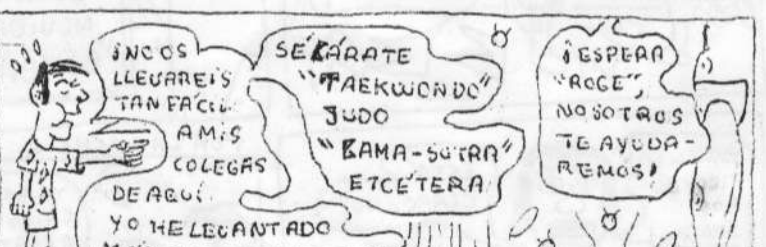 ¡NO OS
LLEVAREIS
TAN FACIL
A MIS
COLEGAS
DE AQUÍ.
YO HE LEVANTADO
SÉ KÁRATE
"TAEKWONDO"
JUDO
"KAMA-SUTRA"
ETCÉTERA
¡ESPERA
"ROGE",
NOSOTROS
TE AYUDA-
REMOS!